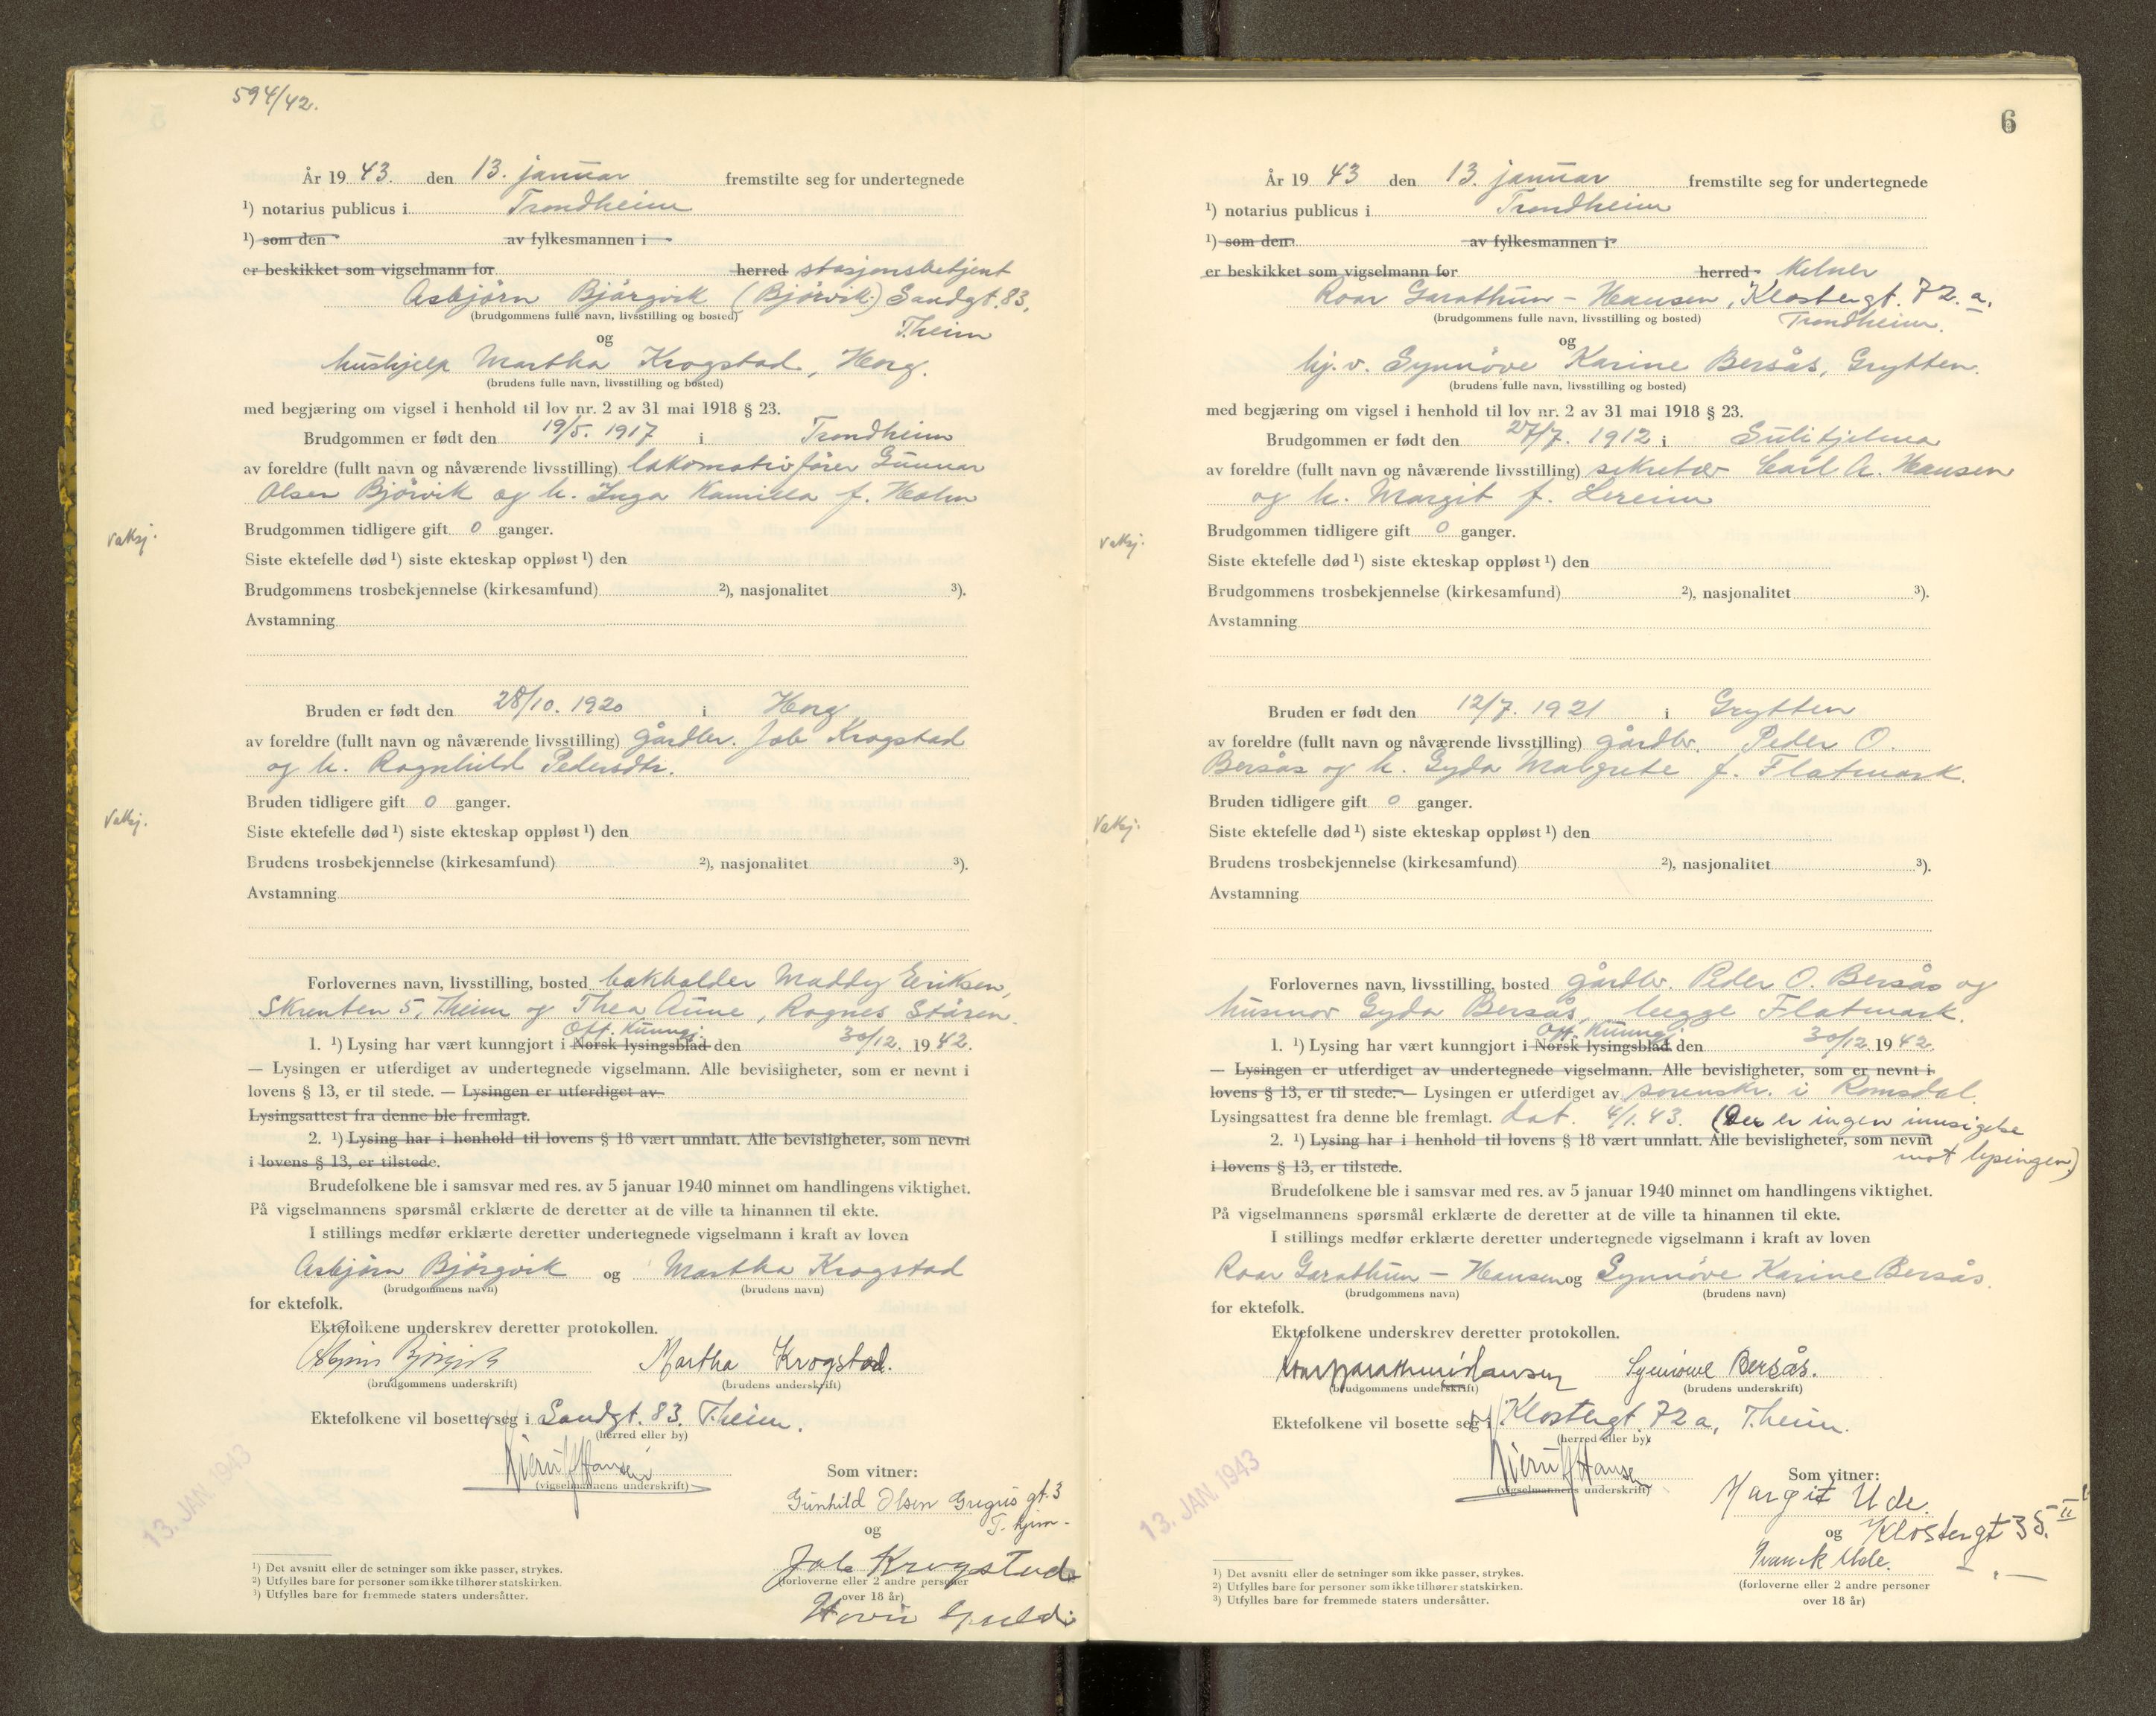 594/42.
År 19 43. den 13. januar fremstilte seg for undertegnede
¹) notarius publicus i Trondheim
¹) som den av fylkesmannen i
er beskikket som vigselmann for herred stasjonsbetjent
Asbjörn Bjørgvik (Bjørvik) Sandgt. 83,
(brudgommens fulle navn, livsstilling og bosted)
T.heim
og
hushjelp Martha Krogstad, Horg.
(brudens fulle navn, livsstilling og bosted)
med begjæring om vigsel i henhold til lov nr. 2 av 31 mai 1918 § 23.
Brudgommen er født den 19/5. 1917 i Trondheim
av foreldre (fullt navn og nåværende livsstilling) lokomotivfører Gunnar
Olsen Bjørvik og h. Inga Kamilla f. Holm
vaksj.
Brudgommen tidligere gift 0 ganger.
Siste ektefelle død ¹) siste ekteskap oppløst ¹) den
Brudgommens trosbekjennelse (kirkesamfund) ²), nasjonalitet ³).
Avstamning
Bruden er født den 28/10. 1920 i Horg
av foreldre (fullt navn og nåværende livsstilling) gårdbr. Job Krogstad
og h. Ragnhild Pedersdtr.
Bruden tidligere gift 0 ganger.
vaksj.
Siste ektefelle død ¹) siste ekteskap oppløst ¹) den
Brudens trosbekjennelse (kirkesamfund) ²), nasjonalitet ³).
Avstamning
Forlovernes navn, livsstilling, bosted bokholder Maddy Eriksen,
Skrenten 5, T.heim og Thea Aune, Rognes Støren.
Off. Kunngj.
1. ¹) Lysing har vært kunngjort i Norsk lysingsblad den 30/12. 19 42.
— Lysingen er utferdiget av undertegnede vigselmann. Alle bevisligheter, som er nevnt i
lovens § 13, er til stede. — Lysingen er utferdiget av
Lysingsattest fra denne ble fremlagt.
2. ¹) Lysing har i henhold til lovens § 18 vært unnlatt. Alle bevisligheter, som nevnt
i lovens § 13, er tilstede.
Brudefolkene ble i samsvar med res. av 5 januar 1940 minnet om handlingens viktighet.
På vigselmannens spørsmål erklærte de deretter at de ville ta hinannen til ekte.
I stillings medfør erklærte deretter undertegnede vigselmann i kraft av loven
Asbjörn Bjørgvik og Martha Krogstad
(brudgommens navn) (brudens navn)
for ektefolk.
Ektefolkene underskrev deretter protokollen.
Asbjørn Bjørgvik Martha Krogstad.
(brudgommens underskrift) (brudens underskrift)
Ektefolkene vil bosette seg i Sandgt. 83. T.heim.
(herred eller by)
Hansen
(vigselmannens underskrift)
13. JAN. 1943
Som vitner:
Gunhild Olsen Gregus gt. 3
T. hjem
og
Job Krogstad
(forloverne eller 2 andre personer
over 18 år)
Hovin Guld.
¹) Det avsnitt eller de setninger som ikke passer, strykes.
²) Utfylles bare for personer som ikke tilhører statskirken.
³) Utfylles bare for fremmede staters undersåtter.
6
År 19 43 den 13. januar fremstilte seg for undertegnede
¹) notarius publicus i Trondheim
¹) som den av fylkesmannen i
er beskikket som vigselmann for herred Kelner
Roar Garathun - Hansen, Klostergt. 72. a.
(brudgommens fulle navn, livsstilling og bosted)
Trondheim.
og
hj. v. Synnöve Karine Bersås, Grytten.
(brudens fulle navn, livsstilling og bosted)
med begjæring om vigsel i henhold til lov nr. 2 av 31 mai 1918 § 23.
Brudgommen er født den 27/7. 1912 i Sulitjelma
av foreldre (fullt navn og nåværende livsstilling) sekretær Carl A. Hansen
og h. Margit f. Lereim
vaksj.
Brudgommen tidligere gift 0 ganger.
Siste ektefelle død ¹) siste ekteskap oppløst ¹) den
Brudgommens trosbekjennelse (kirkesamfund) ²), nasjonalitet ³).
Avstamning
Bruden er født den 12/7. 1921 i Grytten
av foreldre (fullt navn og nåværende livsstilling) gårdbr. Peder O.
Bersås og h. Gyda Margrete f. Flatmark.
Bruden tidligere gift 0 ganger.
vaksj.
Siste ektefelle død ¹) siste ekteskap oppløst ¹) den
Brudens trosbekjennelse (kirkesamfund) ²), nasjonalitet ³).
Avstamning
Forlovernes navn, livsstilling, bosted gårdbr. Peder O. Bersås og
husmor Gyda Bersås, begge Flatmark.
Off. Kunngj.
1. ¹) Lysing har vært kunngjort i Norsk lysingsblad den 30/12. 19 42.
— Lysingen er utferdiget av undertegnede vigselmann. Alle bevisligheter, som er nevnt i
lovens § 13, er til stede. — Lysingen er utferdiget av sorenskr. i Romsdal.
Lysingsattest fra denne ble fremlagt. dat. 4/1. 43. (Der er ingen innsigelse
2. ¹) Lysing har i henhold til lovens § 18 vært unnlatt. Alle bevisligheter, som nevnt
mot lysingen)
i lovens § 13, er tilstede.
Brudefolkene ble i samsvar med res. av 5 januar 1940 minnet om handlingens viktighet.
På vigselmannens spørsmål erklærte de deretter at de ville ta hinannen til ekte.
I stillings medfør erklærte deretter undertegnede vigselmann i kraft av loven
Roar Garathun - Hansen og Synnöve Karine Bersås.
(brudgommens navn) (brudens navn)
for ektefolk.
Ektefolkene underskrev deretter protokollen.
Roar Garathun Hansen Synnöve Bersås.
(brudgommens underskrift) (brudens underskrift)
Ektefolkene vil bosette seg i Klostergt. 72 a, T.heim.
(herred eller by)
Hansen
(vigselmannens underskrift)
13. JAN. 1943
Som vitner:
Margit Ude.
og Klostergt 35. II
Franck Ude.
(forloverne eller 2 andre personer
over 18 år)
¹) Det avsnitt eller de setninger som ikke passer, strykes.
²) Utfylles bare for personer som ikke tilhører statskirken.
³) Utfylles bare for fremmede staters undersåtter.